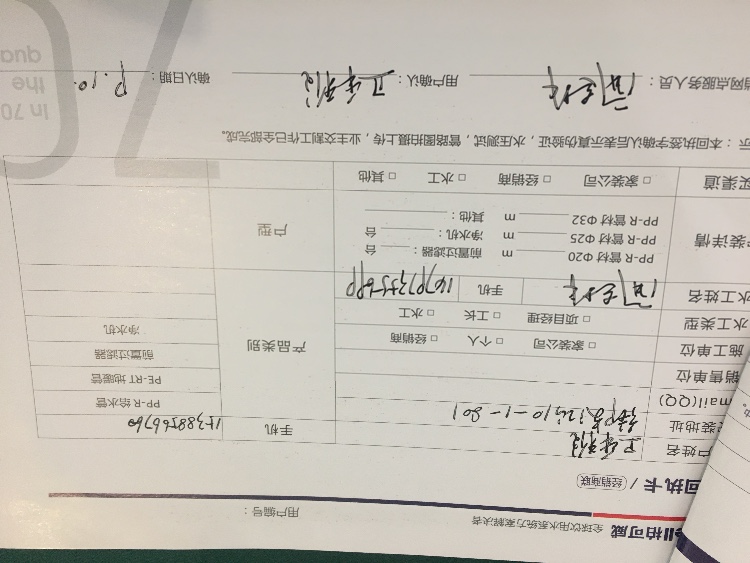 ell柏可威 全球饮用水系统方案解决者 用户编号：
回执卡 / 经销商联
户姓名 手机 15388566760
装地址 10-1-801
mail(QQ)
销售单位
施工单位 □ 家装公司 □ 个人 □ 经销商
水工类型 □ 项目经理 □ 工长 □ 水工
水工姓名 手机
产品类别
PP-R 给水管
PE-RT 地暖管
前置过滤器
净水机
装详情 PP-R 管材 Φ20 m 前置过滤器： 台
PP-R 管材 Φ25 m 净水机： 台
PP-R 管材 Φ32 m 其他：
户型
买渠道 □ 家装公司 □ 经销商 □ 水工 □ 其他
示：本回执字签字确认后表示真伪验证，水压测试，管路图拍摄上传，业主交割工作已全部完成。
销网点服务人员： 用户确认： 确认日期：
In 70
the
qua